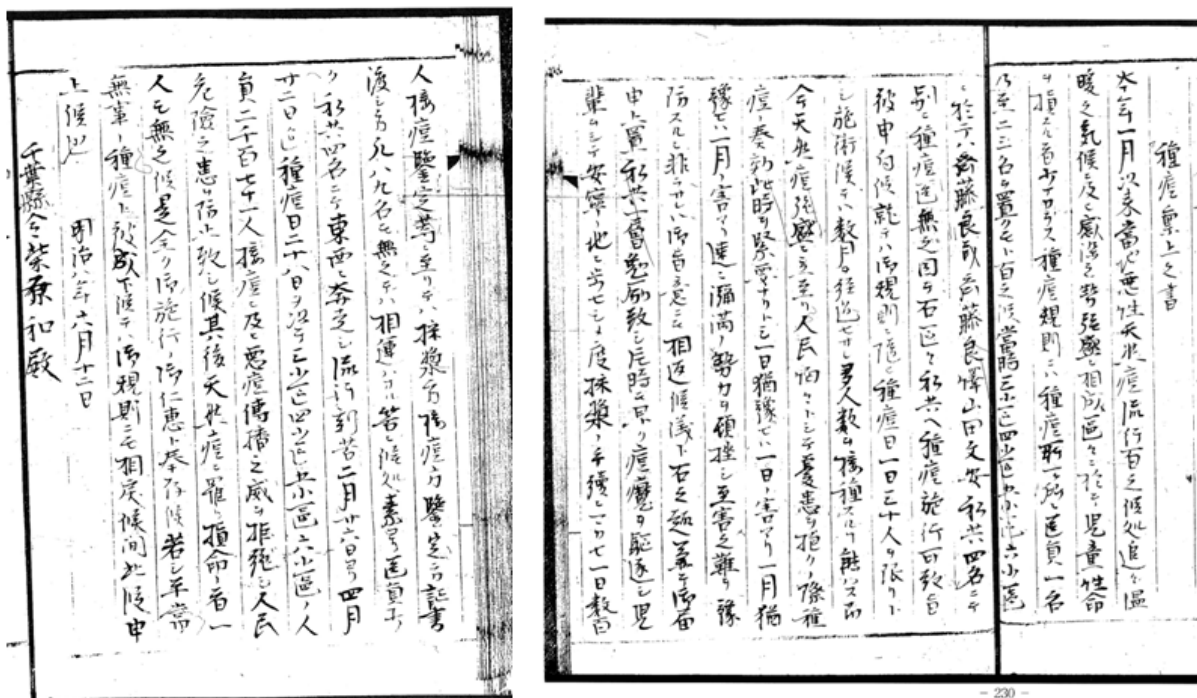 種痘稟上之書
今年一月以来當地悪性天然痘流行有之候処追々温
暖之気候ニ及ヒ感染之勢強盛ニ相成区々ニ於テ児童性命
ヲ損スル者少ナカラス種痘規則ニハ種痘所一ヶ所ニ医員一名
乃至二三名ヲ置クモ下有之候當時三小区四小区五小区六小区
ニ於テハ斎藤良哉斎藤良 山田文安私共四名ニテ
別ニ種痘医無之因テ右区々私共ヘ種痘施行可致旨
被申付候就テハ御規則ニ随ヒ種痘日一日三十人ヲ限リト
シ施術候テハ数月ヲ経過セサレハ多人数ニ接種スル能ハス
今天然痘強盛ニ立至リ人民怕々トシテ憂患ヲ抱ク ノ際種
痘ノ奏効此時ヲ緊要ナリトシ一日猶豫セハ一日ノ害アリ一月猶
豫セハ一月ノ害アリ速ニ瀰満ノ勢力ヲ頓挫シ至害之難ヲ豫
防スルニ非ラサレハ御旨意ニモ相返候儀ト右之
申上置私共一層勉励致シ片時モ早ク痘魔ヲ駆逐シ児
輩ヲシテ安寧ノ地ニ歩セシメ度採漿ノ手続ヨリ一日数百
人接痘鑒定等ニ至リテハ採漿方接痘方鑒定方証書
渡シ方凡八九名モ無之テハ相運ハサル筈ニ候処素ヨリ医員
私共四名ニテ東西ニ奔走シ流行劇苦二月廿六日ヨリ四月
廿二日迄種痘日二十八日ヲ以テ三小区四小区五小区六小区ノ人
員二千百七十一人接痘ニ及ヒ悪痘傳播之威ヲ拒絶シ人民
危険之患ヲ防止致シ候其後天然痘ニ罹リ損命ノ者一
人モ無之候是全ク御施行ノ御仁恵ト奉存候若シ平常
無事ノ種痘ト被成下候テハ御規則ニモ相戻候間此段申
上候也
明治八年六月十二日
千葉縣令柴原和殿
- 230 -